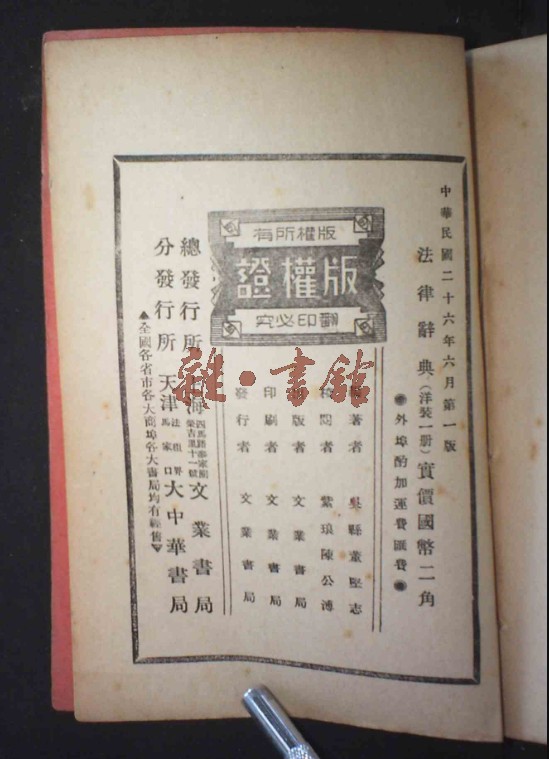 中華民國二十六年六月第一版
法律辭典(洋裝一册)實價國幣二角
●外埠酌加運費匯費●
版權所有
版權證
翻印必究
著者 吳縣董堅志
校閱者 紫琅陳公溥
版者 文業書局
印刷者 文業書局
發行者 文業書局
總發行所 上海四馬路 文業書局
分發行所 天津法租界馬家口 大中華書局
▲全國各省市各大商埠各大書局均有經售▼
雜·書館